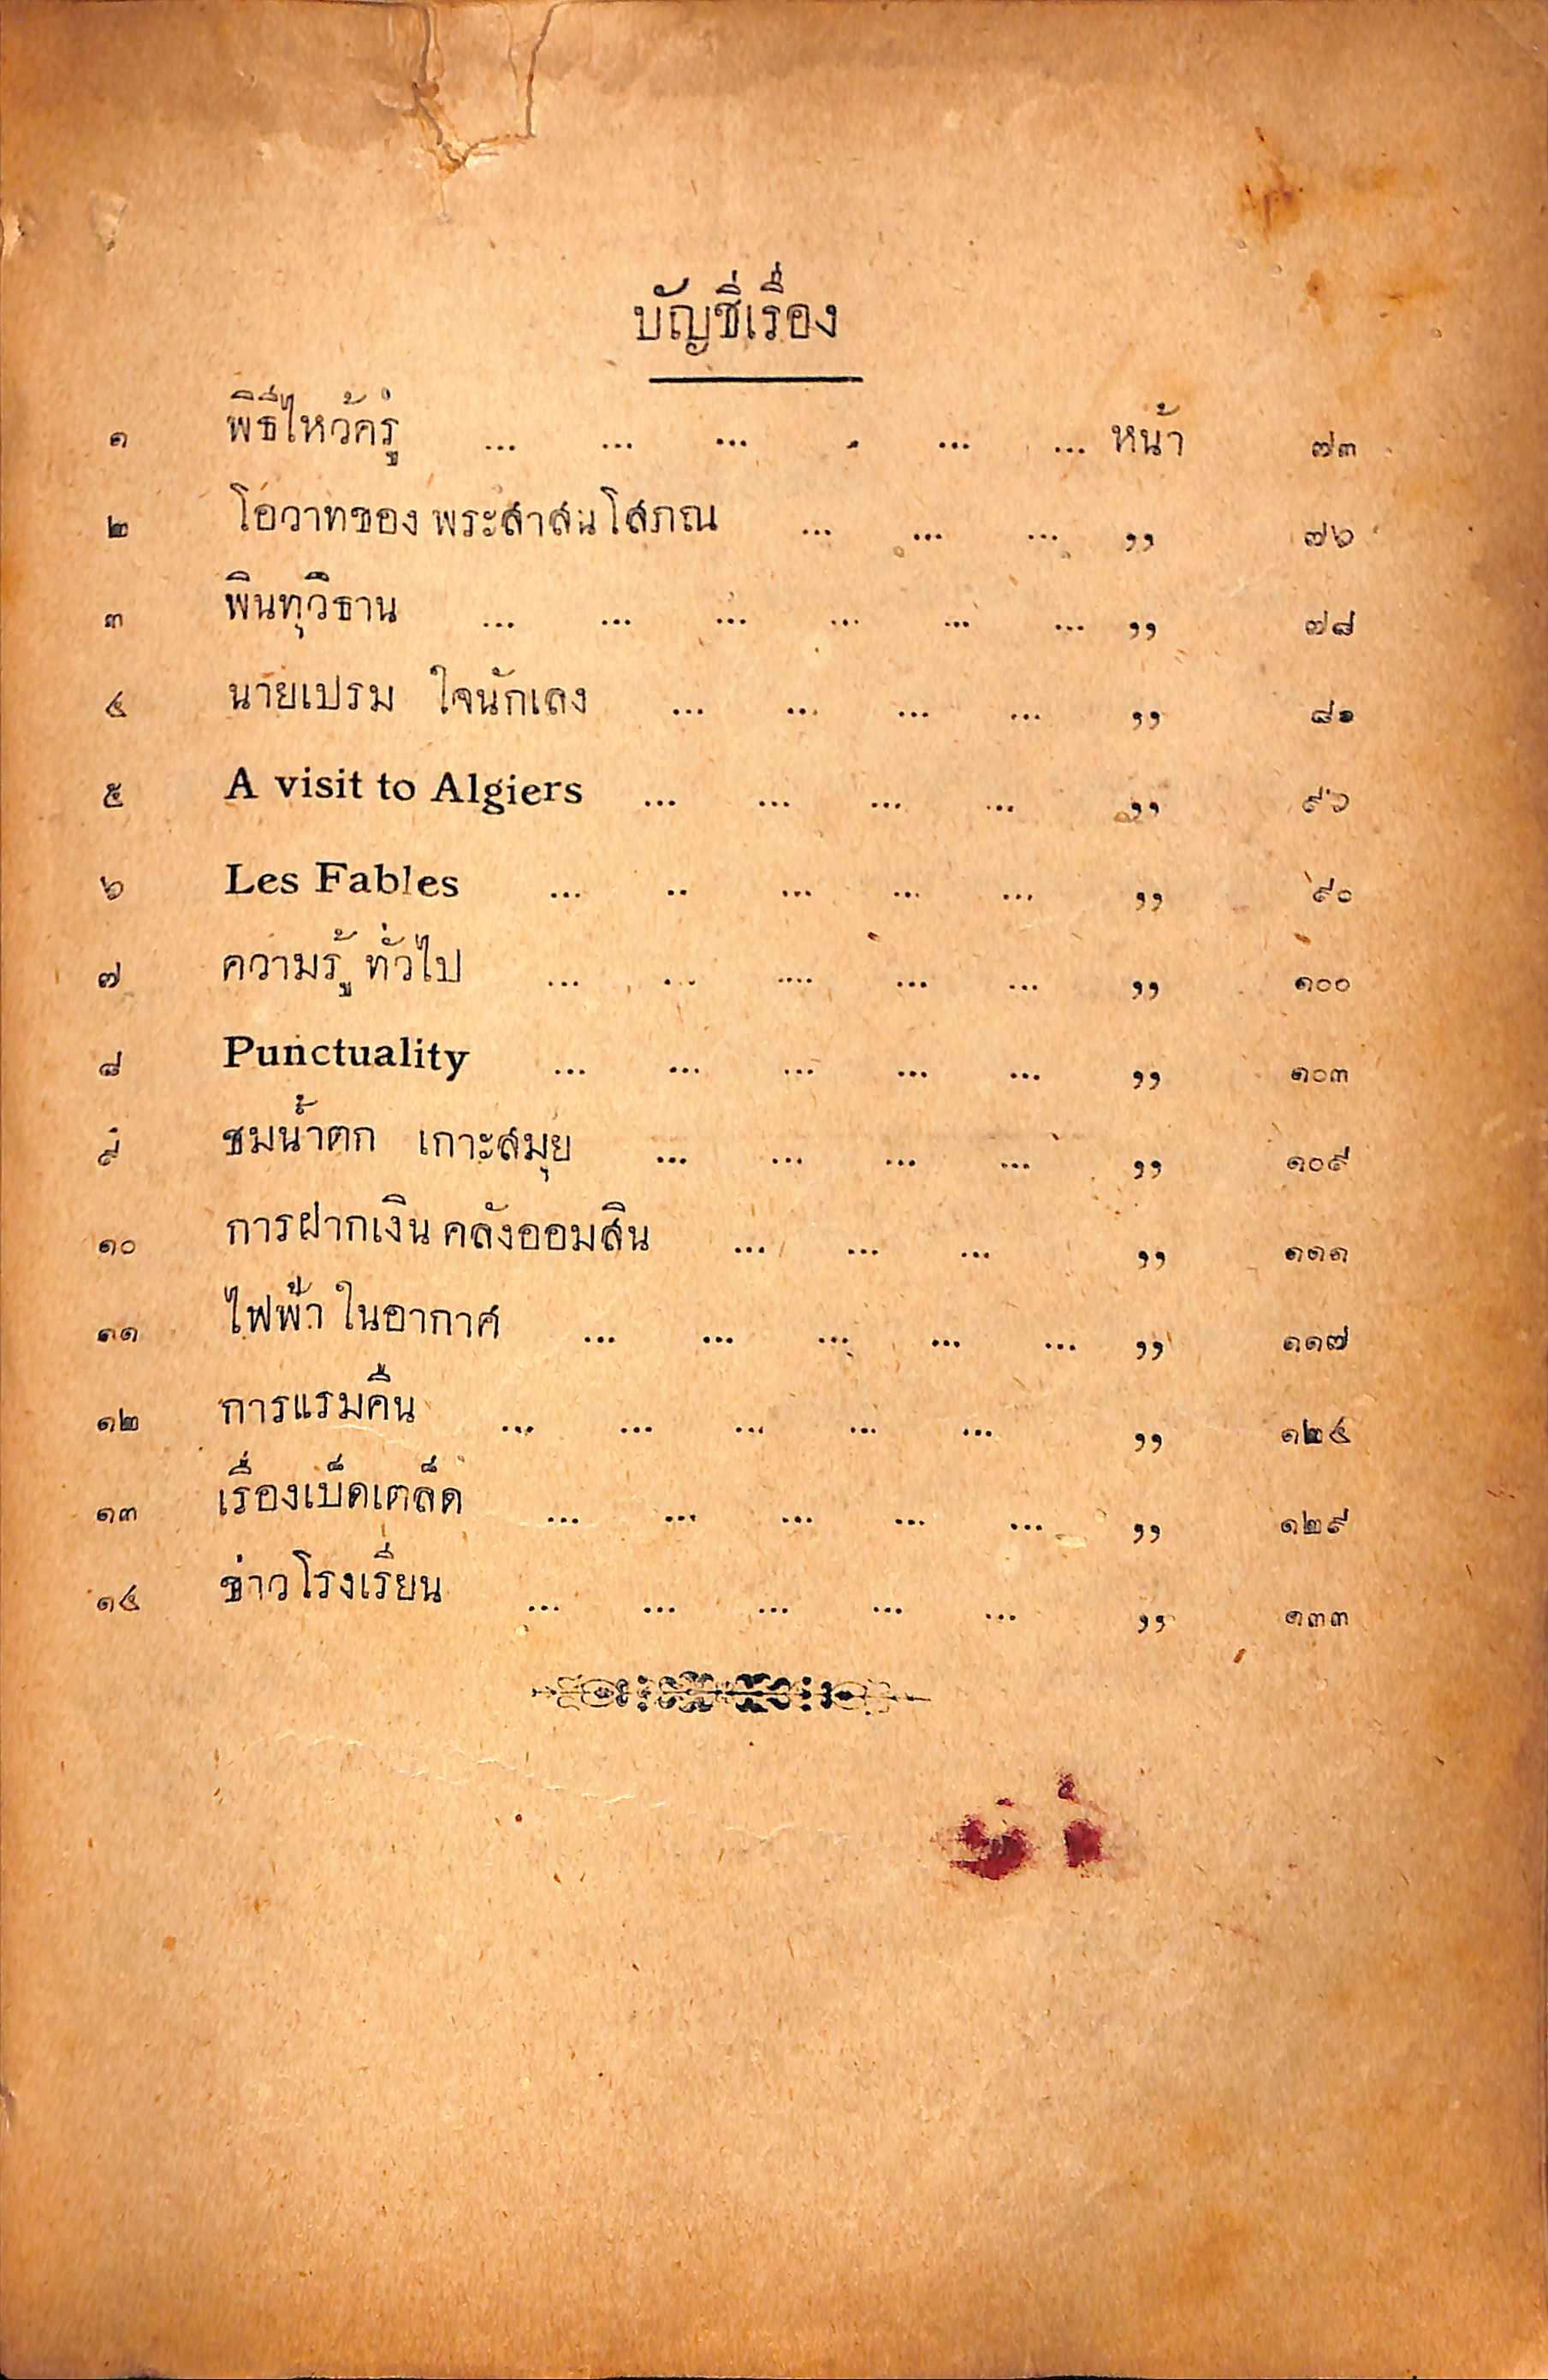 บัญชีเรื่อง
๑ พิธีไหว้ครู ... ... ... . ... ... หน้า ๗๓
๒ โอวาทของ พระสาสนโสภณ ... ... ... ,, ๗๖
๓ พินทุวิธาน ... ... ... ... ... ... ,, ๗๘
๔ นายเปรม ใจนักเลง ... ... ... ... ,, ๘๑
๕ A visit to Algiers ... ... ... ... ,, ๙๖
๖ Les Fables ... .. ... ... ... ,, ๙๐
๗ ความรู้ ทั่วไป ... ... .... ... ... ,, ๑๐๐
๘ Punctuality ... ... ... ... ... ,, ๑๐๓
๙ ชมน้ำตก เกาะสมุย ... ... ... ... ,, ๑๐๙
๑๐ การฝากเงิน คลังออมสิน ... ... ... ,, ๑๑๑
๑๑ ไฟฟ้า ในอากาศ ... ... ... ... ... ,, ๑๑๗
๑๒ การแรมคืน ... ... ... ... ... ,, ๑๒๔
๑๓ เรื่องเบ็ดเตล็ด ... ... ... ... ... ,, ๑๒๙
๑๔ ข่าวโรงเรียน ... ... ... ... ... ,, ๑๓๓